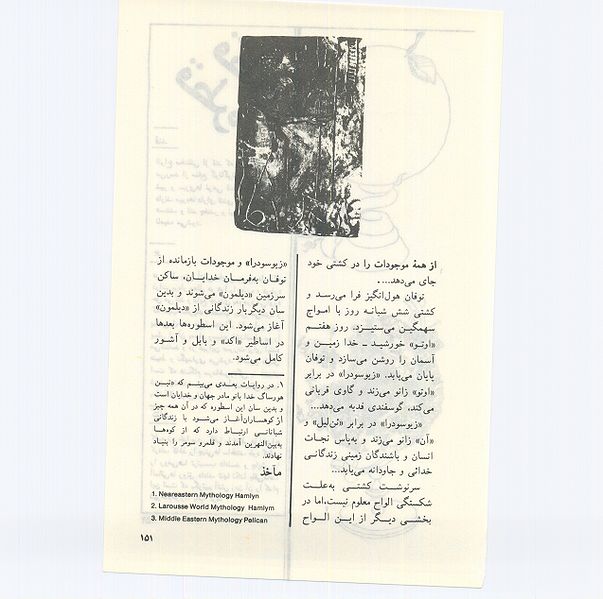 از همهٔ موجودات را در کشتی خود
جای می‌دهد....
توفان هول‌انگیز فرا می‌رسد و
کشتی شش شبانه روز با امواج
سهمگین می‌ستیزد. روز هفتم
«اوتو» خورشید ـ خدا زمین و
آسمان را روشن می‌سازد و توفان
پایان می‌یابد. «زیوسودرا» در برابر
«اوتو» زانو می‌زند و گاوی قربانی
می‌کند، گوسفندی فدیه می‌دهد...
«زیوسودرا» در برابر «ئن‌لیل» و
«آن» زانو می‌زند و به‌پاس نجات
انسان و باشندگان زمینی زندگانی
خدائی و جاودانه می‌یابد...
سرنوشت کشتی به‌علت
شکستگی الواح معلوم نیست،اما در
بخشی دیگر از این الواح
«زیوسودرا» و موجودات بازمانده از
توفان به‌فرمان خدایان، ساکن
سرزمین «دیلمون» می‌شوند و بدین
سان دیگربار زندگانی از «دیلمون»
آغاز می‌شود. این اسطوره‌ها بعدها
در اساطیر «اکد» و بابل و آشور
کامل می‌شود.
۱. در روایات بعدی می‌بینم که «نین
هورساگ خدا بانو مادر جهان و خدایان است
و بدین سان این اسطوره که در آن همه چیز
از کوهساران آغاز می‌شود با زندگانی
شبانانی ارتباط دارد که از کوه‌ها
به‌بین‌النهرین آمدند و قلمرو سومر را بنیاد
نهادند.
مآخذ
1. Neareastern Mythology Hamlyn
2. Larousse World Mythology Hamlym
3. Middle Eastern Mythology Pelican
۱۵۱